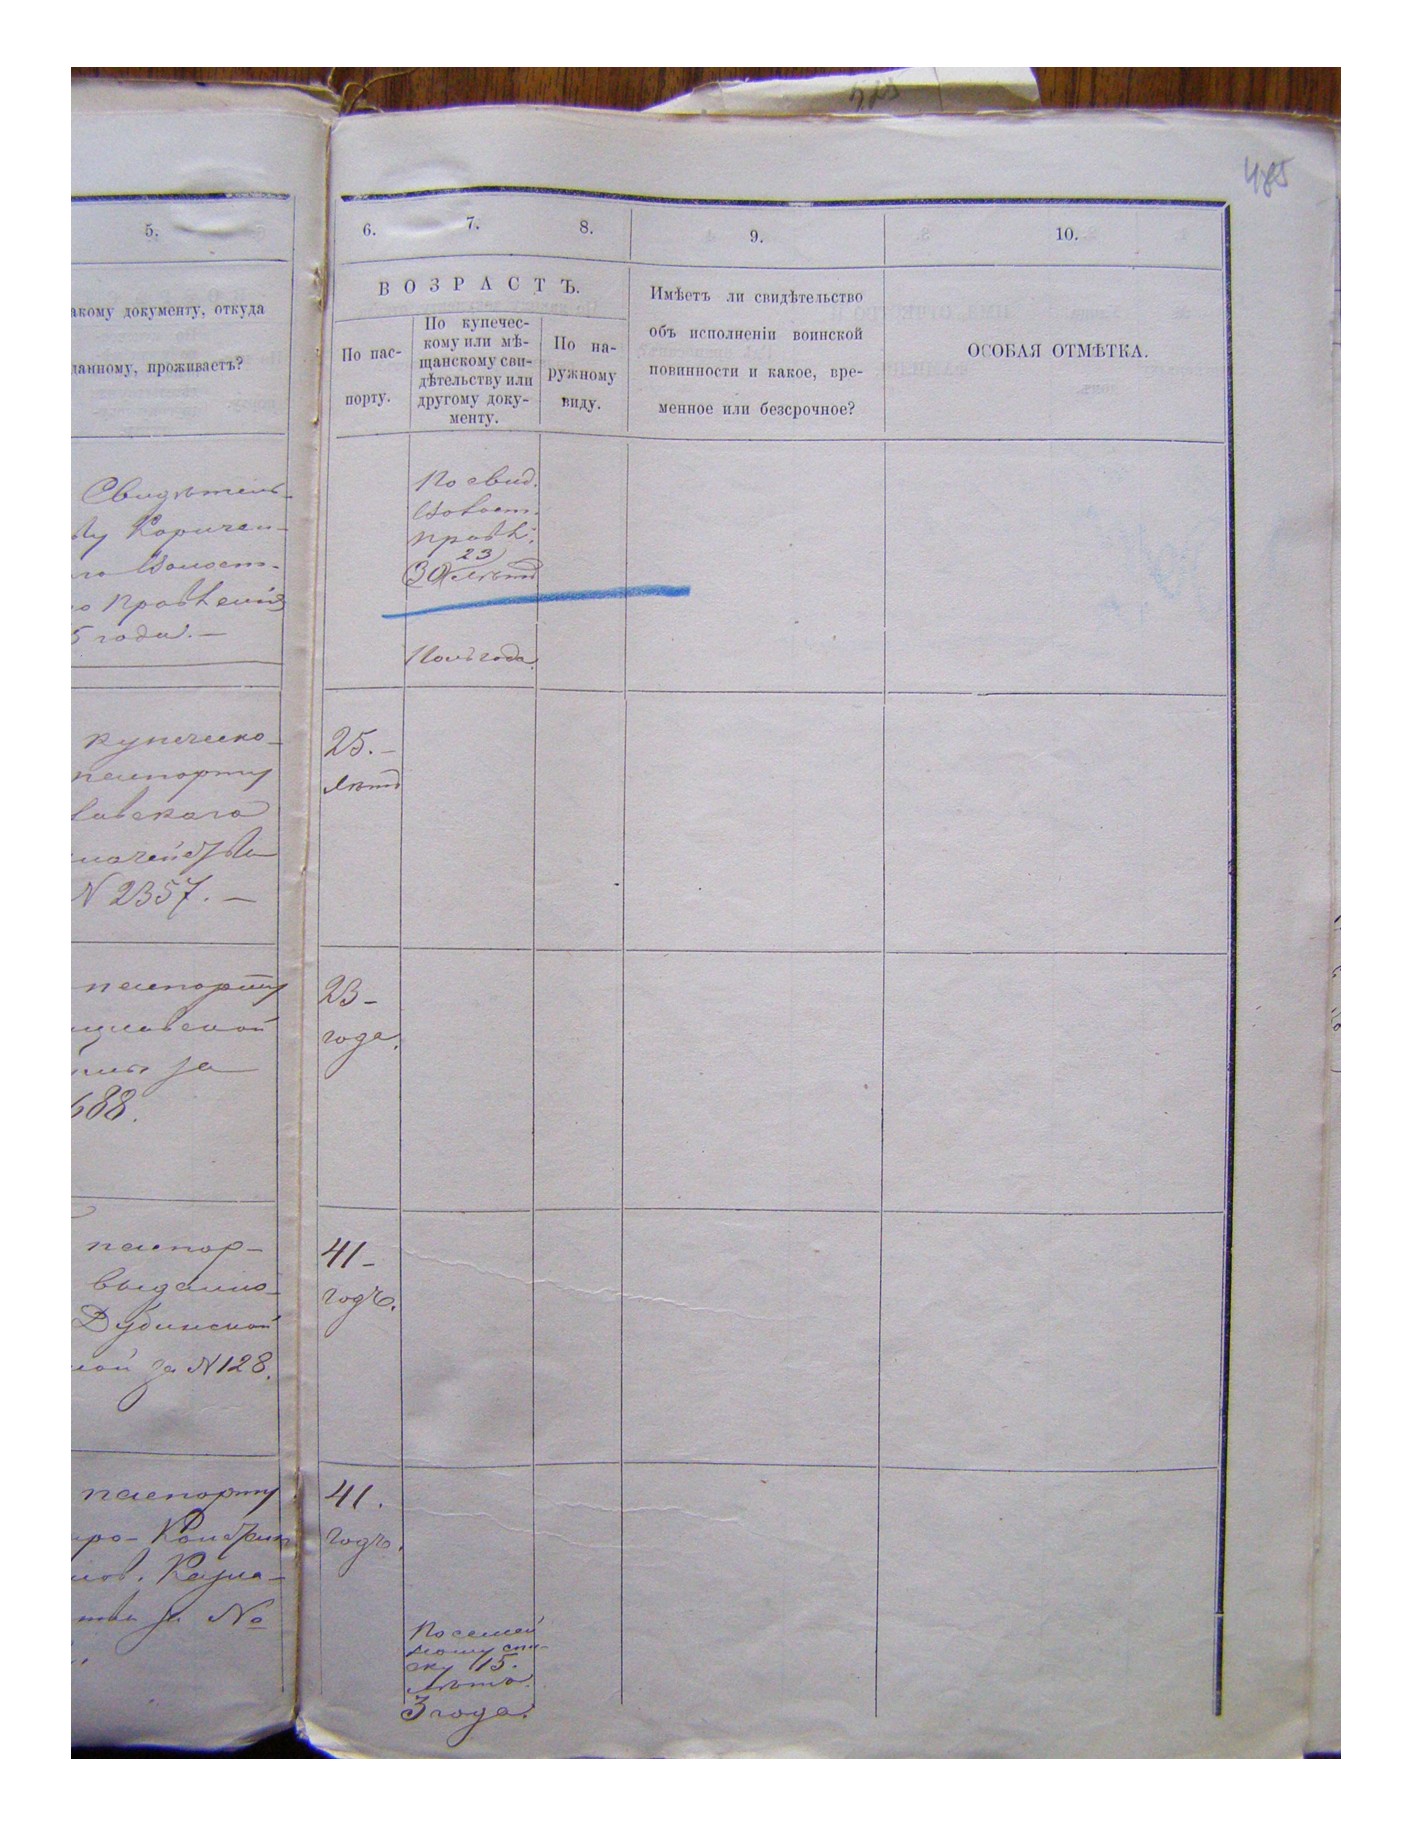 485
5.
акому документу, откуда
данному, проживаетъ?
6.
7.
8.
9.
10.
ВОЗРАСТЪ.
По пас-
порту.
По купечес-
кому или мѣ-
щанскому сви-
дѣтельству или
другому доку-
менту.
По на-
ружному
виду.
Имѣетъ ли свидѣтельство
объ исполненіи воинской
повинности и какое, вре-
менное или безсрочное?
ОСОБАЯ ОТМѢТКА.
Свидѣтель-
Волост-
Правленія
5 года. —
По свид.
Волост.
правл.
23
30 лѣтъ
Полъ года.
купеческо-
паспорту
N 2357. —
25. —
лѣтъ
паспорту
за
688.
23 —
года.
паспор-
выданно-
Дубинской
ной за N 128.
41 —
годъ.
паспорту
за №
41.
годъ.
По семей
ному спи-
ску 15.
лѣтъ.
3 года.